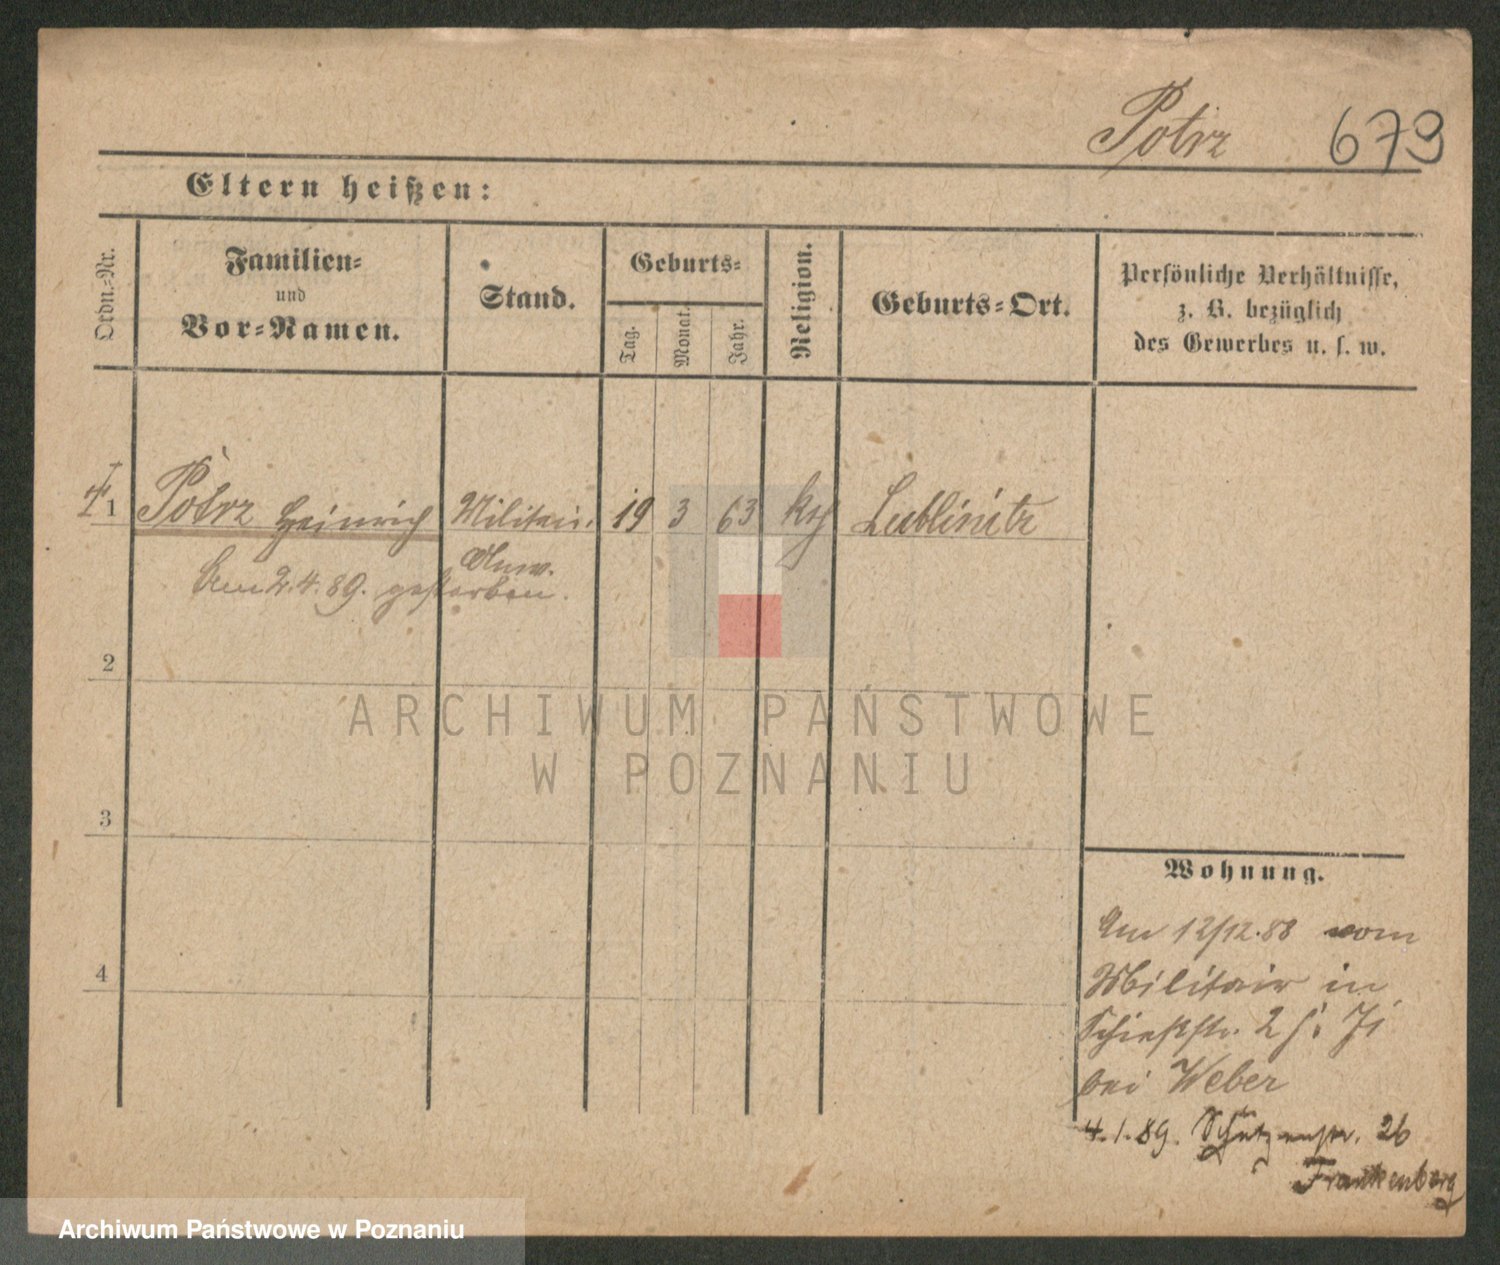 Potrz 679
Eltern heißen:
Ordn.-Nr.
Familien-
und
Vor-Namen.
Stand.
Geburts-
Tag.
Monat.
Jahr.
Religion.
Geburts-Ort.
Persönliche Verhältnisse,
z. B. bezüglich
des Gewerbes u. s. w.
1 Potrz Heinrich Militair. 19 3 63 Lublinitz
Anw.
Am 2.4.89. gestorben.
2
ARCHIWUM PAŃSTWOWE
W POZNANIU
3
Wohnung.
Am 12/12.88 vom
4
Militair in
Schießstr. 2
bei Weber
4.1.89. Schützenstr. 26
Frankenberg
Archiwum Państwowe w Poznaniu